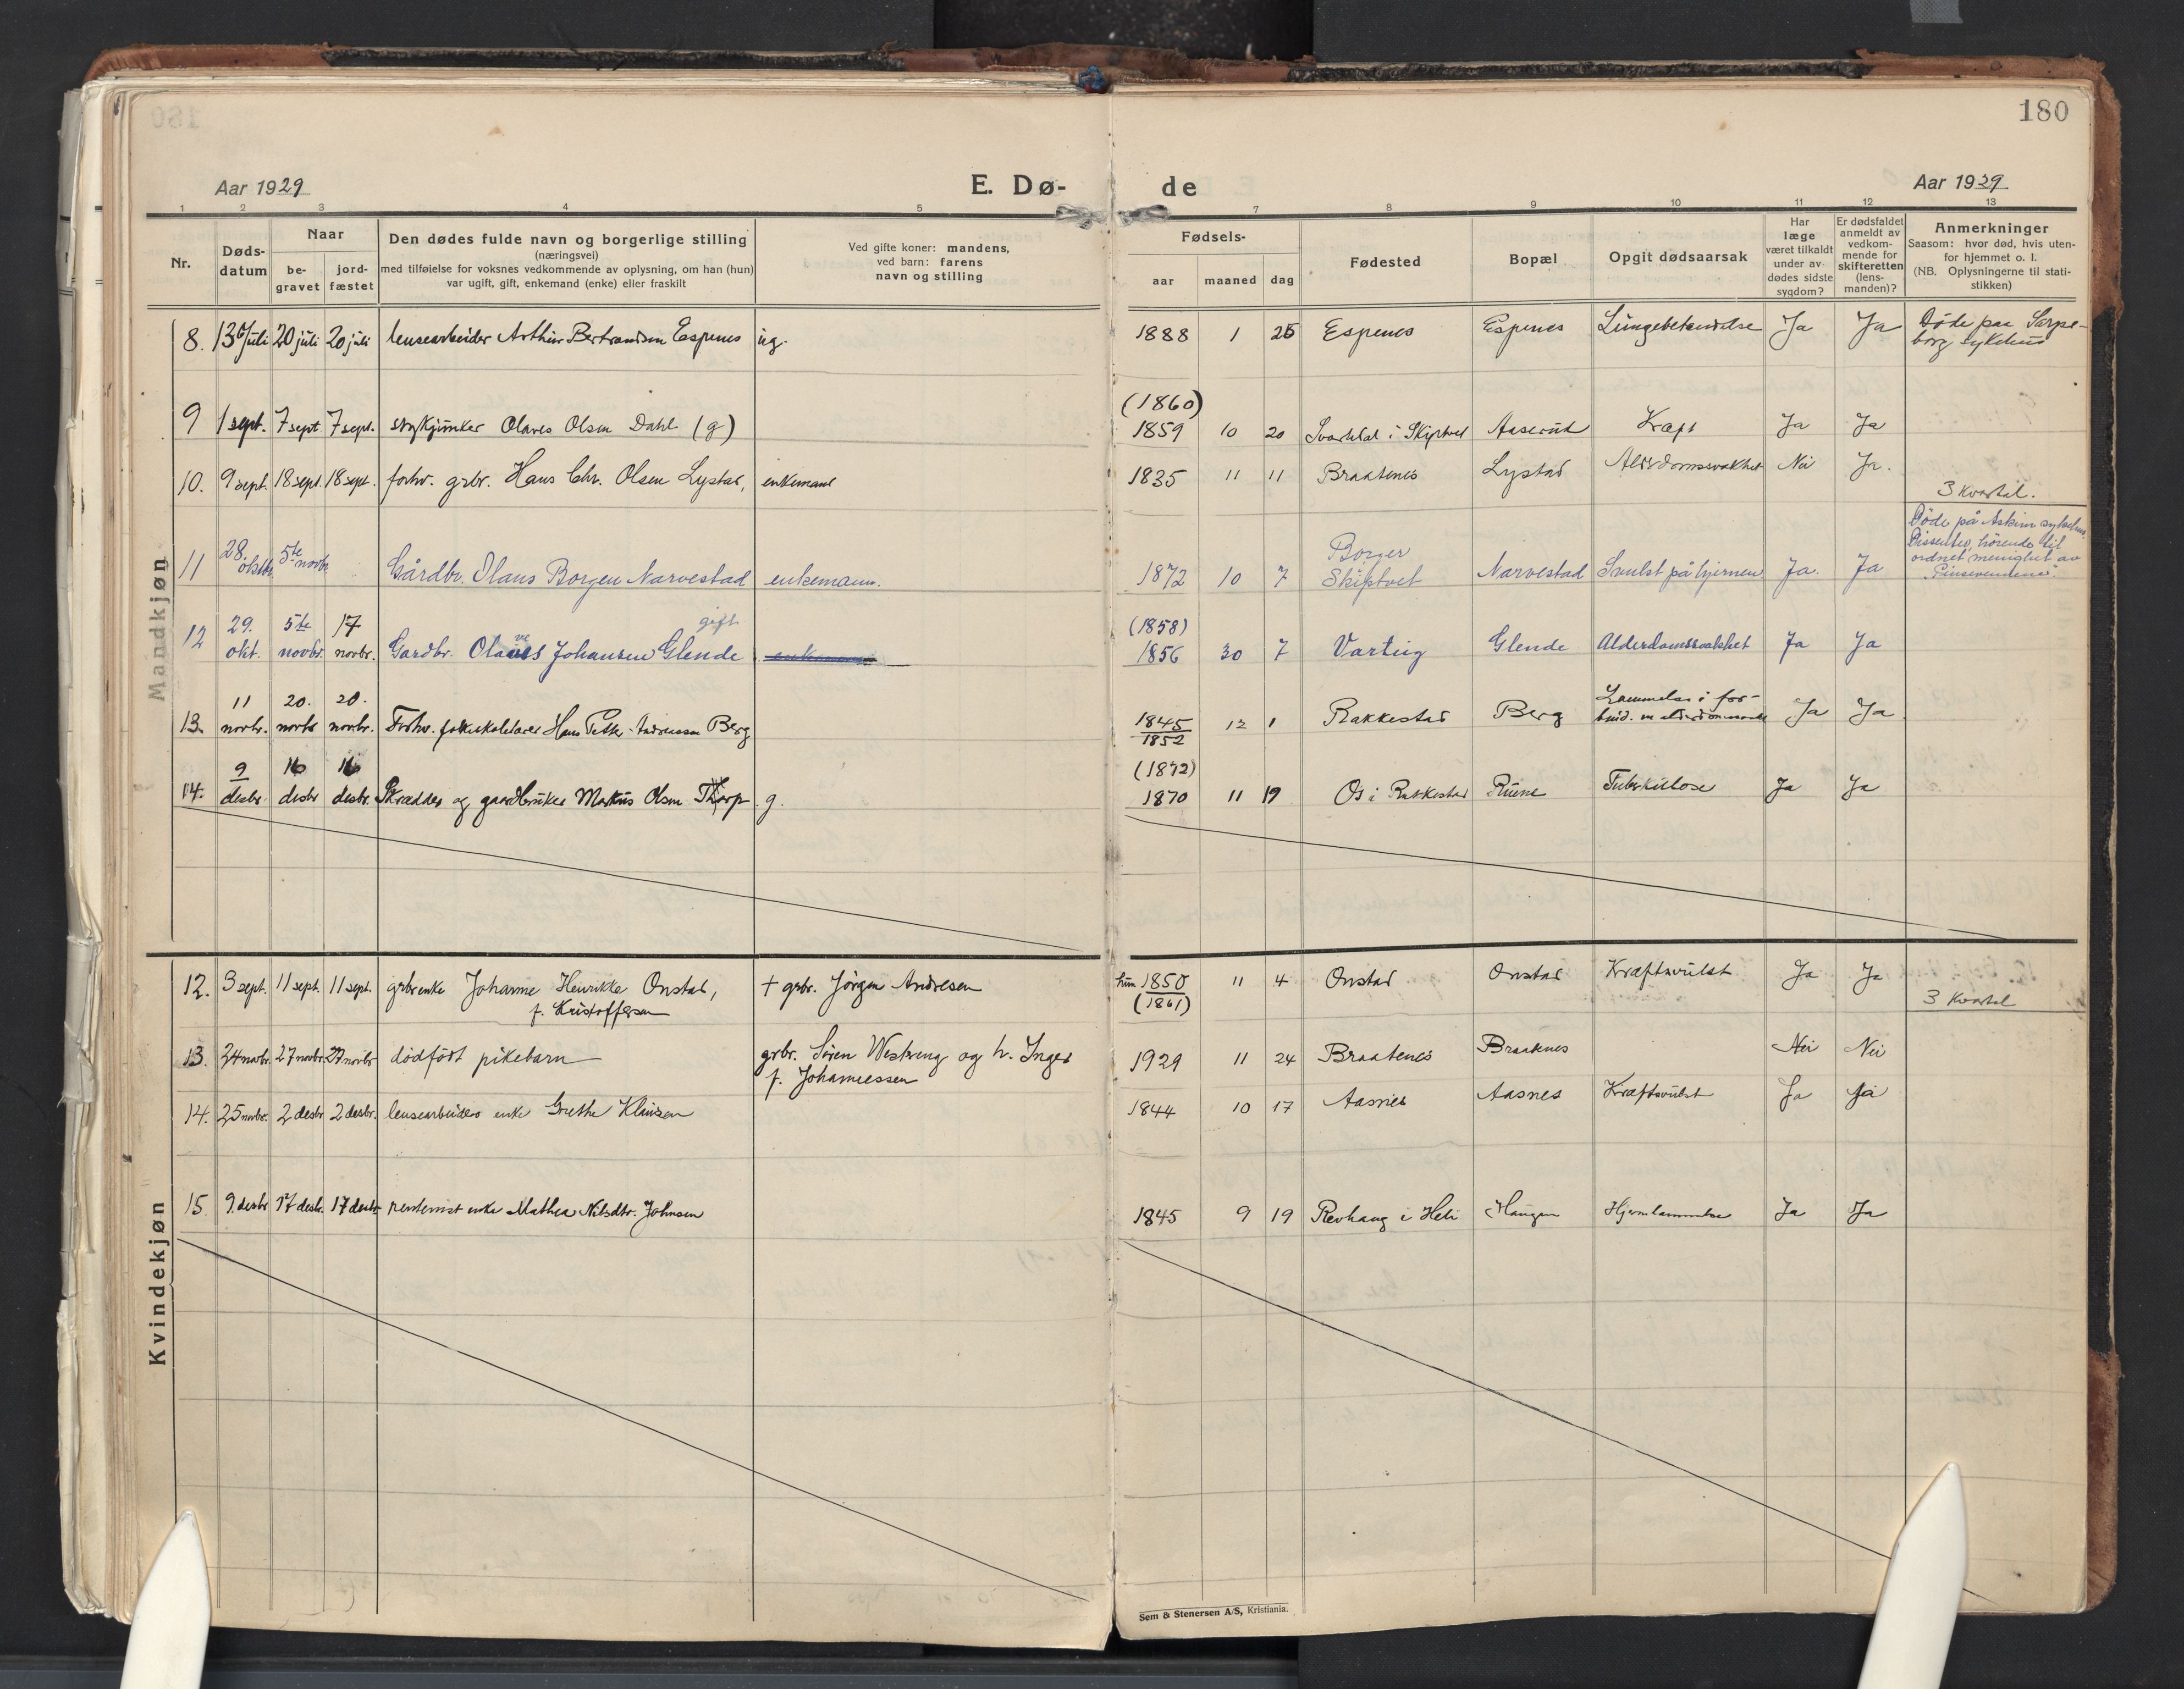 180
Aar 1929
E. Dø-
de
Aar 1929
1 2 3 4 5 7 8 9 10 11 12 13
Nr.
Døds-
datum
Naar
be-
gravet
jord-
fæstet
Den dødes fulde navn og borgerlige stilling
(næringsvei)
med tilføielse for voksnes vedkommende av oplysning, om han (hun)
var ugift, gift, enkemand (enke) eller fraskilt
Ved gifte koner: mandens,
ved barn: farens
navn og stilling
Fødsels-
aar maaned dag
Fødested
Bopæl
Opgit dødsaarsak
Har
læge
været tilkaldt
under av-
dødes sidste
sygdom?
Er dødsfaldet
anmeldt av
vedkom-
mende for
skifteretten
(lens-
manden)?
Anmerkninger
Saasom: hvor død, hvis uten-
for hjemmet o. l.
(NB. Oplysningerne til stati-
stikken)
Mandkjøn
8. 13 juli 20 juli 20 juli lensearbeider Arthur Bertrandsen Espenes ug. 1888 1 25 Espenes Espenes Lungebetændelse Ja Ja Døde paa Sarps-
borg sykehus
(1860)
9 1 sept. 7 sept 7 sept. Olaves Olsen Dahl (g) 1859 10 20 i Skiptvet Aaserud Kræft Ja Ja
10. 9 sept. 18 sept. 18 sept. forhv. grbr. Hans Chr. Olsen Lystad, enkemand 1835 11 11 Braatenes Lystad Alderdomssvakhet Nei Ja.
3 kvartal.
11 28. oktbr. 5te novbr. Gårdbr. Olaus Borgen Narvestad enkemann. 1872 10 7 Borger
Skiptvet Narvestad Svulst på hjernen Ja. Ja
Døde på Askim sykehus.
Dissenter, hørende til
ordnet menighet av
"Pinsevennene".
12 29. okt. 5te novbr. 17 novbr. Gardbr. Olaves Johansen Glende gift enkemann (1858)
1856 30 7 Varteig Glende Alderdomssvakhet Ja Ja
13. 11 novbr. 20. novbr 20. novbr. Forhv. folkeskolelærer Hans Petter Andreassen Berg 1845
1852 12 1 Rakkestad Berg Lammelse i for-
bind. m alderdomssvakh Ja Ja
14. 9 desbr. 16 desbr 16 desbr. Skrædder og gaardbruker Markus Olsen Thorp g. (1872)
1870 11 19 Os i Rakkestad Ruene Tuberkulose Ja Ja
Kvindekjøn
12. 3 sept. 11 sept. 11 sept. grbrenke Johanne Henrikke Onstad,
f. Kristoffersen
+ grbr. Jørgen Andresen 1850
(1861) 11 4 Onstad Onstad Kræftsvulst Ja Ja
3 Kvartal
13. 24 novbr. 27 novbr. 27 novbr dødfødt pikebarn grbr. Søren Westreng og h. Inger
f. Johannessen
1929 11 24 Braatenes Braatenes Nei Nei
14. 25 novbr. 2 desbr 2 desbr. lensearbeiders enke Grethe Klausen 1844 10 17 Aasnes Aasnes Kræftsvulst Ja Ja
15. 9. desbr 17 desbr. 17 desbr enke Mathea Nilsdtr. Johnsen 1845 9 19 Revhaug i Heli Haugen Hjernelammelse Ja Ja
Sem & Stenersen A/S, Kristiania.